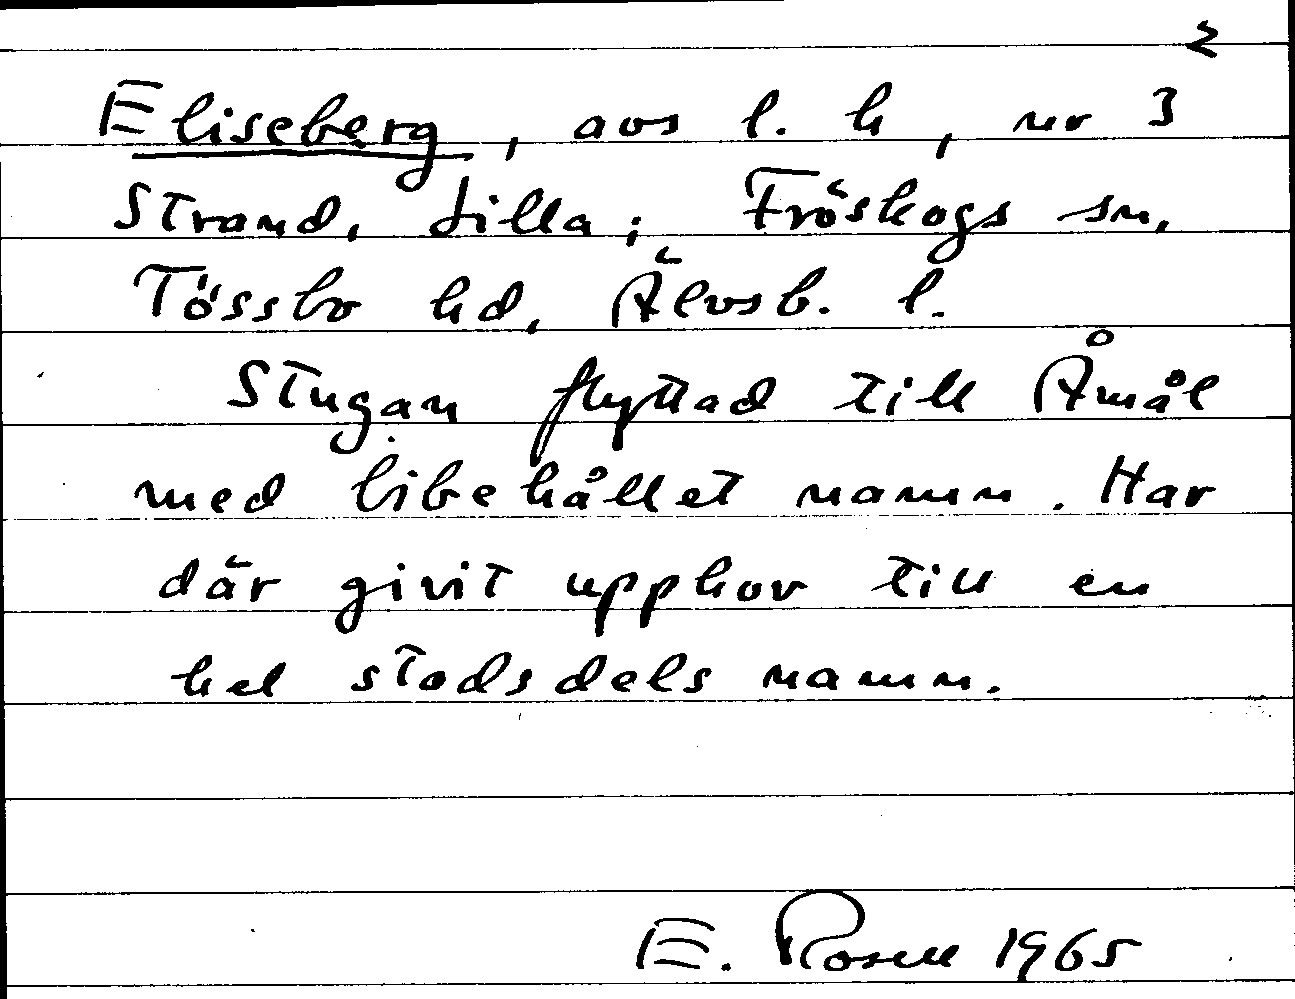 2
Eliseberg, avs l. h, nr 3
Strand, Lilla; Fröskogs sn,
Tössbo hd, Älvsb. l.
Stugan flyttad till Åmål
med bibehållet namn. Har
där givit upphov till en
hel stadsdels namn.
E. Rosell 1965